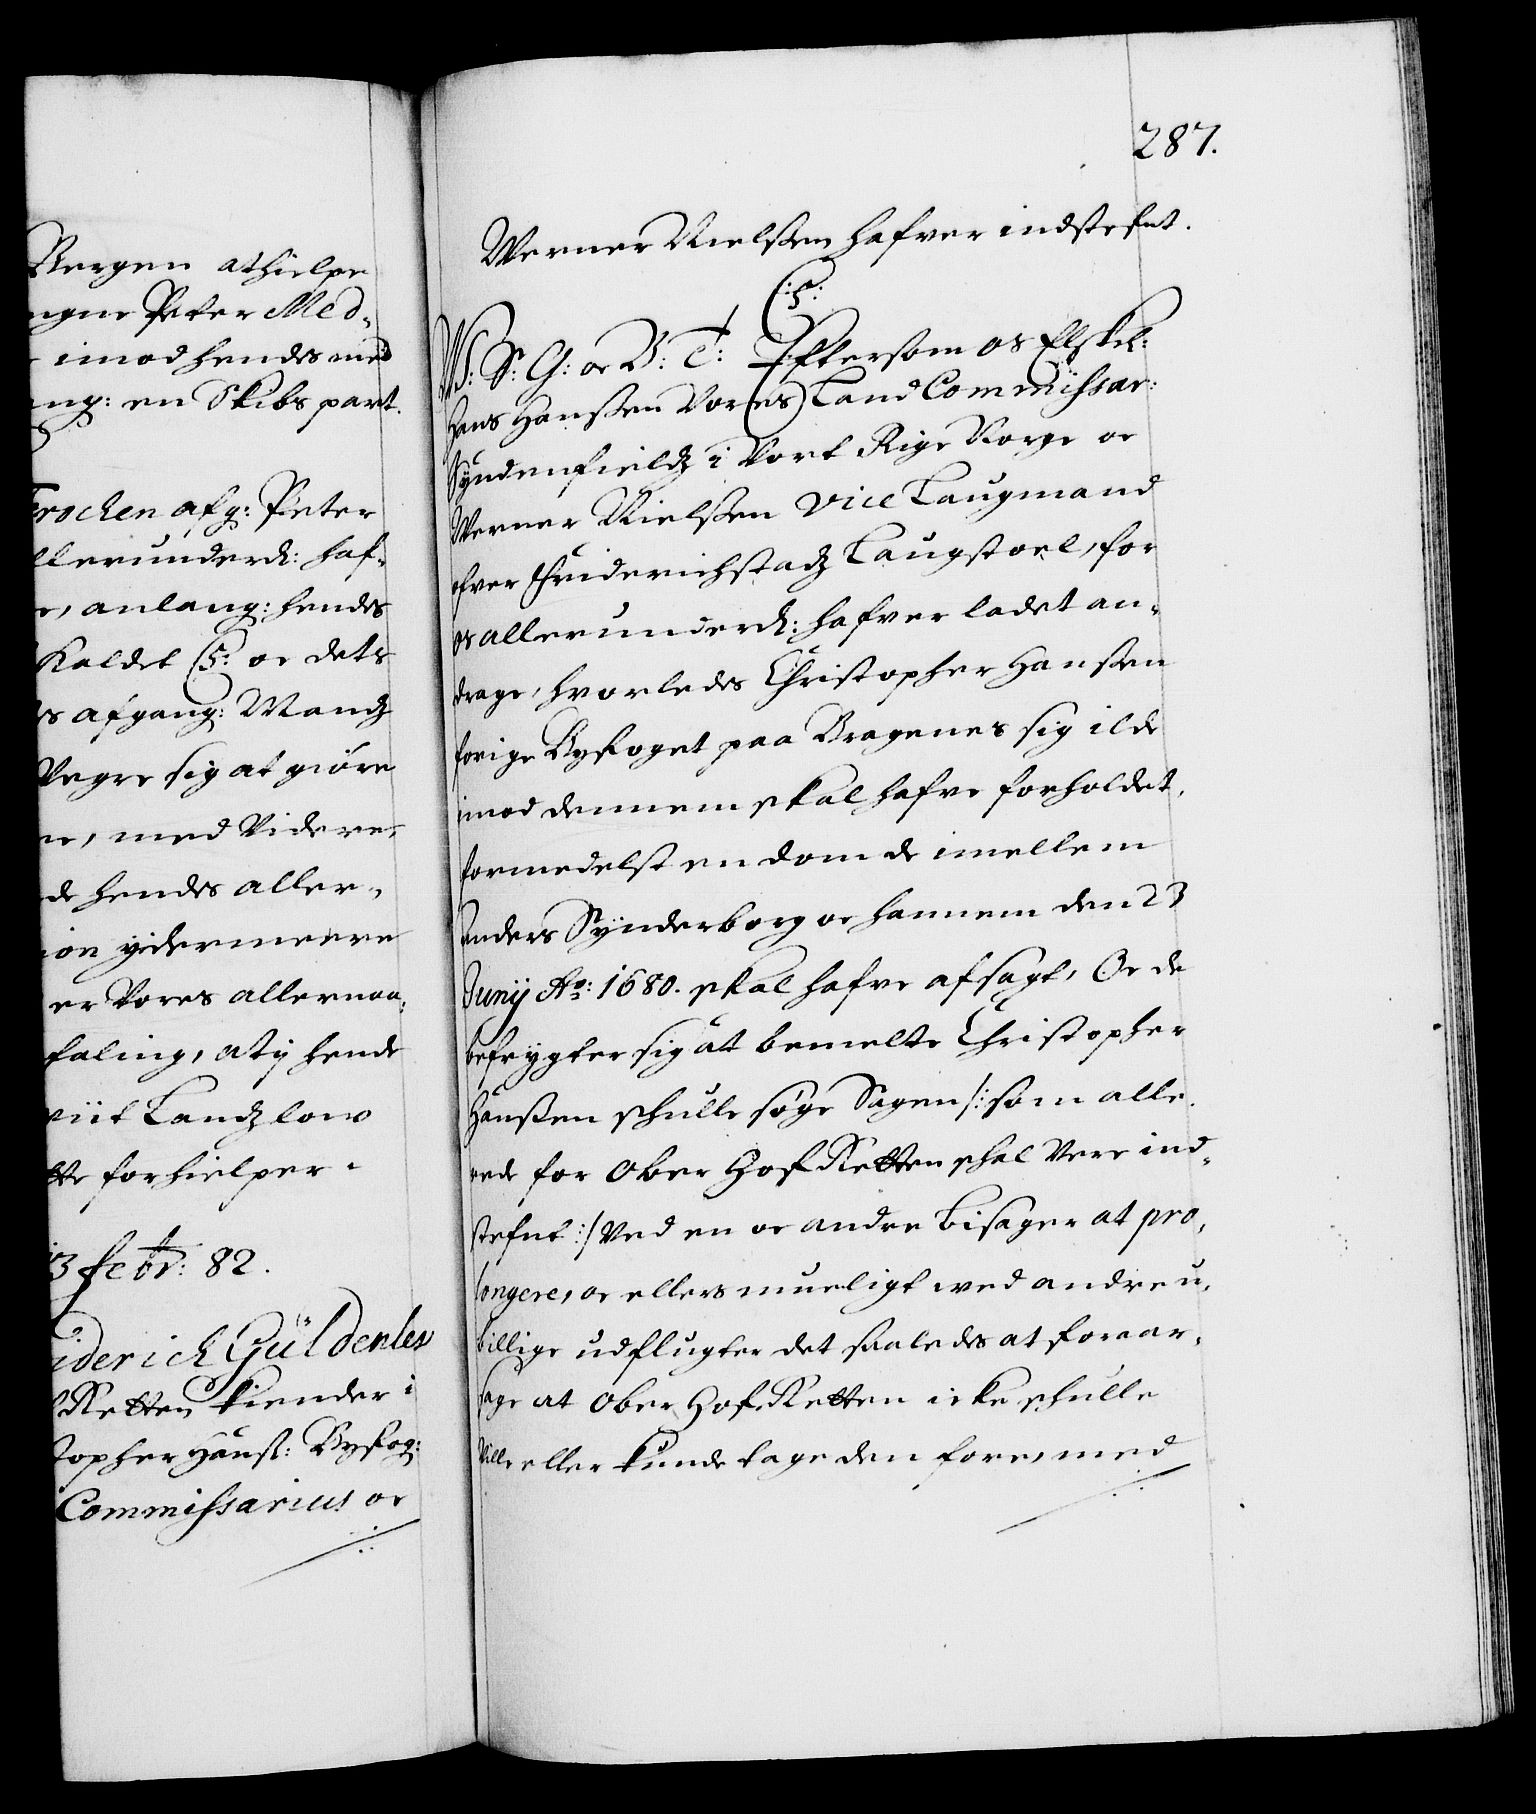 Bergen at hielpe
Peter Med-
imod hendes med
en Skibs part.
Trochen afg: Peter
allerunderd: haf-
anlang: hendes
Kaldet (5: oc dets
afgang: Mandz
Vegre sig at giöre
med Videre,
hendes aller-
ydermeere
er Vores allernaa-
faling, at ÿ hende
Landz low
forhielper.
13 febr: 82.
iderich Güldenlew
Retten kiender i
topher Hanß: Byfog:
Commissarius oc
287.
Werner Nielßen hafver indstefnt.
(:5:
W: S: G: oc V: T: Eftersom os Elskel:
Hans Hanßen Vores Land Commissar:
Syndenfieldz i Vort Rige Norge oc
Werner Nielßen Vice Laugmand
ofver Friderichstadz Laugstoel, for
os allerunderd: hafver ladet an-
drage, hvorledes Christopher Hanßen
forige Byfoget paa Bragenes sig ilde
imod dennem skal hafve forholdet,
formedelst en dom de imellem
Anders Sÿnderborg oc hannem den 23
Junij Ao: 1680. skal hafve afsagt, Oc de
befrygter sig at bemelte Christopher
Hanßen schulle söge Sagen /: som alle-
rede for Ober Hof Retten schal Vere ind-
stefnt :/ Ved en oc anden Bisager at pro-
longere, oc ellers mueligt wed andre u-
billige udflugter det saaledes at foraar-
sage at Ober Hof Retten icke schulle
Ville eller kunde tage den fore, med